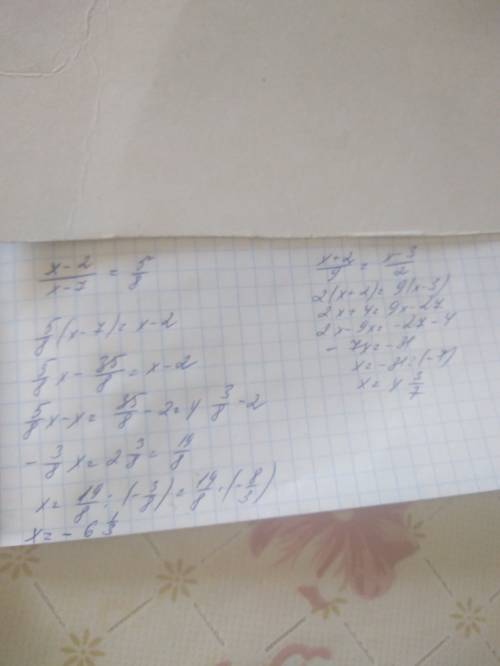 x-2/x-7 = 5/8
5/8(x-7)=x-2
5/8x-35/8=x-2
5/8x-x=35/8-2=4 3/8-2
-3/8x=2 3/8=19/8
x=19/8:(-3/8)=19/8·(-8/3)
x=-6 1/3
x+2/9=x-3/2
2(x+2)=9(x-3)
2x+4=9x-27
2x-9x=-27-4
-7x=-31
x=-31:(-7)
x=4 3/7